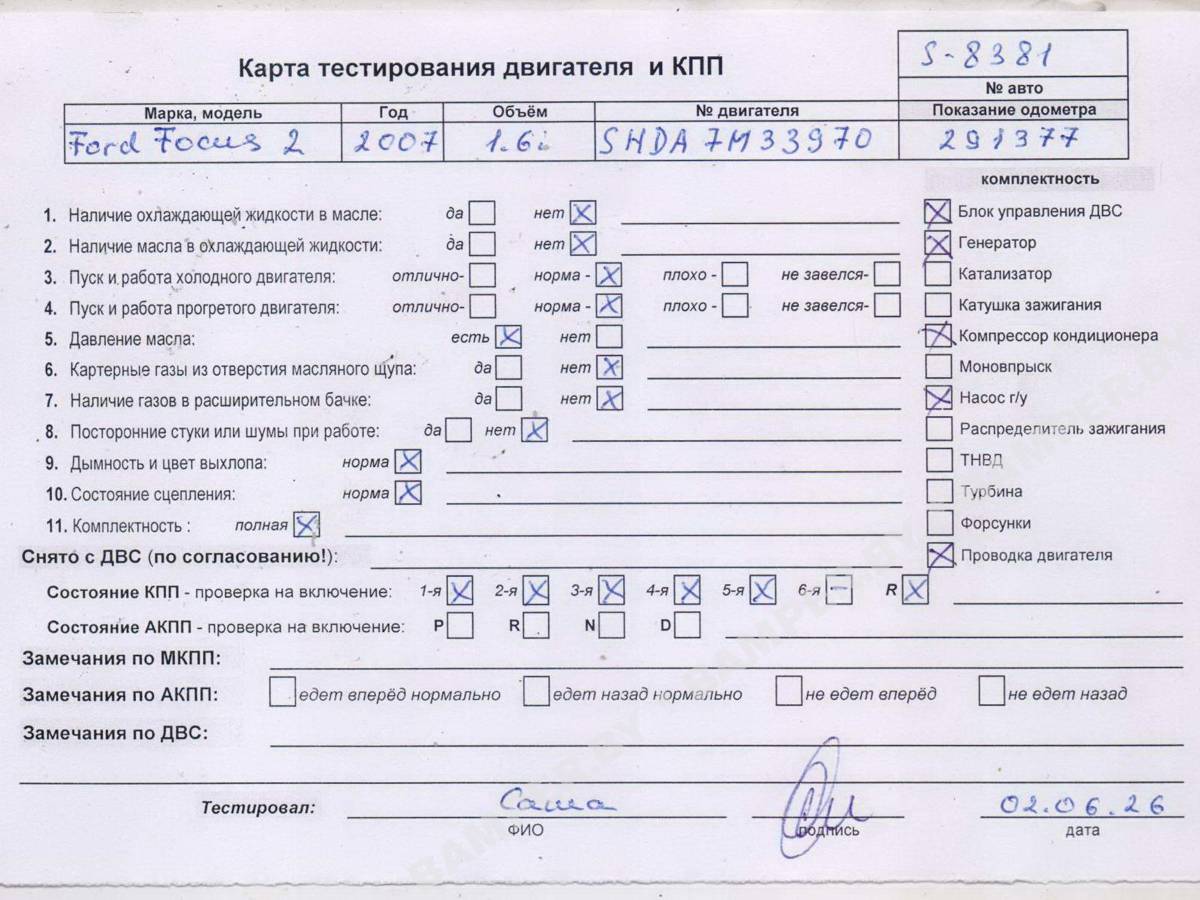 S-8381
Карта тестирования двигателя и КПП
№ авто
Марка, модель Год Объём № двигателя Показание одометра
Ford Focus 2 2007 1.6i SHDA7M33970 291377
комплектность
1. Наличие охлаждающей жидкости в масле: да нет Блок управления ДВС
2. Наличие масла в охлаждающей жидкости: да нет Генератор
3. Пуск и работа холодного двигателя: отлично- норма - плохо - не завелся- Катализатор
4. Пуск и работа прогретого двигателя: отлично- норма - плохо - не завелся- Катушка зажигания
5. Давление масла: есть нет Компрессор кондиционера
6. Картерные газы из отверстия масляного щупа: да нет Моновпрыск
7. Наличие газов в расширительном бачке: да нет Насос г/у
8. Посторонние стуки или шумы при работе: да нет Распределитель зажигания
9. Дымность и цвет выхлопа: норма ТНВД
10. Состояние сцепления: норма Турбина
11. Комплектность : полная Форсунки
Снято с ДВС (по согласованию!): Проводка двигателя
Состояние КПП - проверка на включение: 1-я 2-я 3-я 4-я 5-я 6-я R
Состояние АКПП - проверка на включение: P R N D
Замечания по МКПП:
Замечания по АКПП: едет вперёд нормально едет назад нормально не едет вперёд не едет назад
Замечания по ДВС:
Тестировал: Саша 02.06.26
ФИО подпись дата
BAMPER.BY